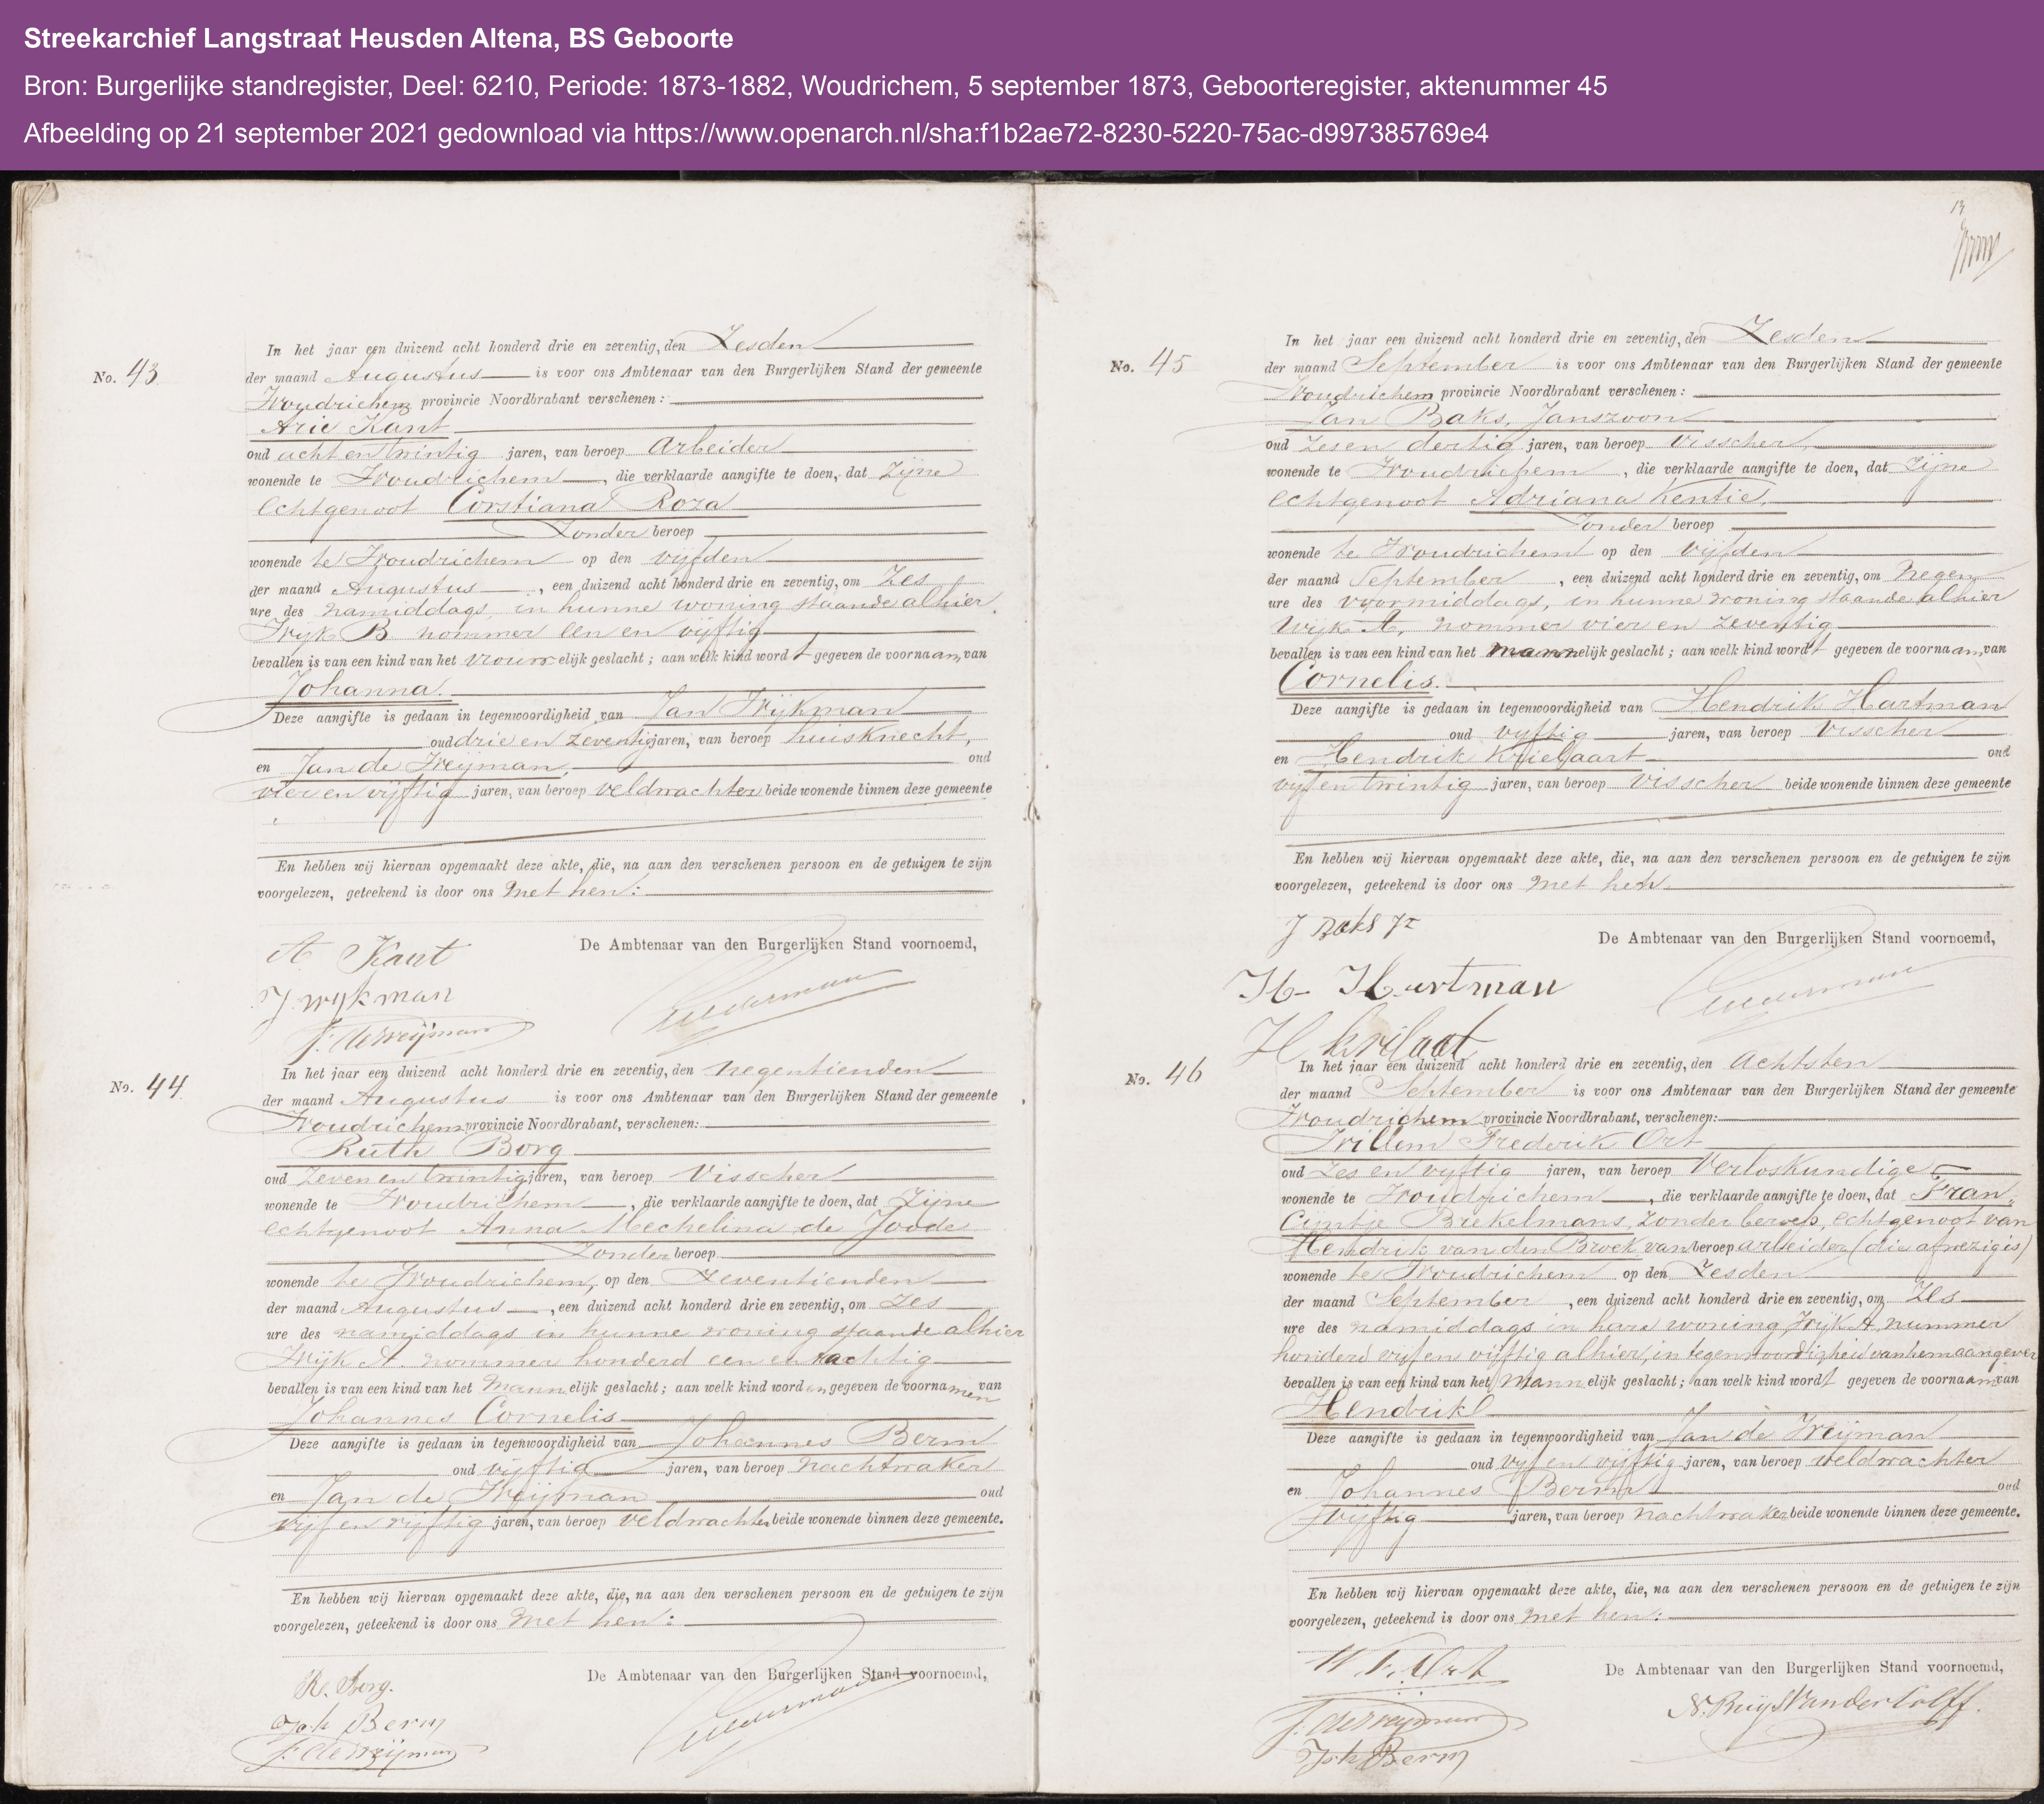 Streekarchief Langstraat Heusden Altena, BS Geboorte
Bron: Burgerlijke standregister, Deel: 6210, Periode: 1873-1882, Woudrichem, 5 september 1873, Geboorteregister, aktenummer 45
Afbeelding op 21 september 2021 gedownload via https://www.openarch.nl/sha:f1b2ae72-8230-5220-75ac-d997385769e4
No. 43
In het jaar een duizend acht honderd drie en zeventig, den Zesden
der maand Augustus is voor ons Ambtenaar van den Burgerlijken Stand der gemeente
Woudrichem provincie Noordbrabant verschenen:
Arie Kant
oud acht en twintig jaren, van beroep Arbeider
wonende te Woudrichem, die verklaarde aangifte te doen, dat zijne
echtgenoot Corstiana Roza
Zonder beroep
wonende te Woudrichem op den vijfden
der maand Augustus, een duizend acht honderd drie en zeventig, om Zes
ure des namiddags, in hunne woning staande alhier
Wijk B nommer een en vijftig
bevallen is van een kind van het vrouwelijk geslacht; aan welk kind wordt gegeven de voornaam van
Johanna.
Deze aangifte is gedaan in tegenwoordigheid van Jan Wijkman
oud drie en zeventig jaren, van beroep huisknecht,
en Jan de Weijman, oud
vier en vijftig jaren, van beroep veldwachter beide wonende binnen deze gemeente
En hebben wij hiervan opgemaakt deze akte, die, na aan den verschenen persoon en de getuigen te zijn
voorgelezen, geteekend is door ons met hen:
De Ambtenaar van den Burgerlijken Stand voornoemd,
A Kant
J. Wijkman
J. de Weijman
No. 44
In het jaar een duizend acht honderd drie en zeventig, den negentienden
der maand Augustus is voor ons Ambtenaar van den Burgerlijken Stand der gemeente
Woudrichem provincie Noordbrabant, verschenen:
Ruth Borg
oud Zeven en twintig jaren, van beroep Visscher
wonende te Woudrichem, die verklaarde aangifte te doen, dat Zijne
echtgenoot Anna Mechelina de Joode
Zonder beroep
wonende te Woudrichem, op den Zeventienden
der maand Augustus, een duizend acht honderd drie en zeventig, om Zes
ure des namiddags in hunne woning staande alhier
Wijk A. nommer honderd een en tachtig
bevallen is van een kind van het Mannelijk geslacht; aan welk kind worden gegeven de voornamen van
Johannes Cornelis
Deze aangifte is gedaan in tegenwoordigheid van Johannes Berm
oud vijftig jaren, van beroep nachtwaker
en Jan de Weijman oud
vijf en vijftig jaren, van beroep veldwachter beide wonende binnen deze gemeente.
En hebben wij hiervan opgemaakt deze akte, die, na aan den verschenen persoon en de getuigen te zijn
voorgelezen, geteekend is door ons met hen:
De Ambtenaar van den Burgerlijken Stand voornoemd,
R. Borg.
Joh Berm
J. de Weijman
13
No. 45
In het jaar een duizend acht honderd drie en zeventig, den Zesden
der maand September is voor ons Ambtenaar van den Burgerlijken Stand der gemeente
Woudrichem provincie Noordbrabant verschenen:
Jan Baks, Janszoon
oud zes en dertig jaren, van beroep visscher,
wonende te Woudrichem, die verklaarde aangifte te doen, dat zijne
echtgenoot Adriana Kentie,
Zonder beroep
wonende te Woudrichem op den vijfden
der maand September, een duizend acht honderd drie en zeventig, om negen
ure des voormiddags, in hunne woning staande alhier
Wijk A, nommer vier en zeventig
bevallen is van een kind van het mannelijk geslacht; aan welk kind wordt gegeven de voornaam van
Cornelis.
Deze aangifte is gedaan in tegenwoordigheid van Hendrik Hartman
oud vijftig jaren, van beroep Visscher
en Hendrik Krielaart oud
vijf en twintig jaren, van beroep visscher beide wonende binnen deze gemeente
En hebben wij hiervan opgemaakt deze akte, die, na aan den verschenen persoon en de getuigen te zijn
voorgelezen, geteekend is door ons met hen.
J Baks Jz
De Ambtenaar van den Burgerlijken Stand voornoemd,
H. Hartman
H krilaat
No. 46
In het jaar een duizend acht honderd drie en zeventig, den achtsten
der maand September is voor ons Ambtenaar van den Burgerlijken Stand der gemeente
Woudrichem provincie Noordbrabant, verschenen:
Willem Frederik Ort
oud zes en vijftig jaren, van beroep Verloskundige
wonende te Woudrichem, die verklaarde aangifte te doen, dat Fran„
Cijntje Brekelmans, zonder beroep, echtgenoot van
Hendrik van den Broek van beroep arbeider (die afwezig is)
wonende te Woudrichem op den Zesden
der maand September, een duizend acht honderd drie en zeventig, om Zes
ure des namiddags in hare woning Wijk A, nummer
honderd vijf en vijftig alhier, in tegenwoordigheid van hem aangever
bevallen is van een kind van het Mannelijk geslacht; aan welk kind wordt gegeven de voornaam van
Hendrik
Deze aangifte is gedaan in tegenwoordigheid van Jan de Weijman
oud vijf en vijftig jaren, van beroep veldwachter
en Johannes Berm oud
vijftig jaren, van beroep nachtwaker beide wonende binnen deze gemeente.
En hebben wij hiervan opgemaakt deze akte, die, na aan den verschenen persoon en de getuigen te zijn
voorgelezen, geteekend is door ons met hen:
W. F. Ort
De Ambtenaar van den Burgerlijken Stand voornoemd,
J. de Weijman
Joh Berm